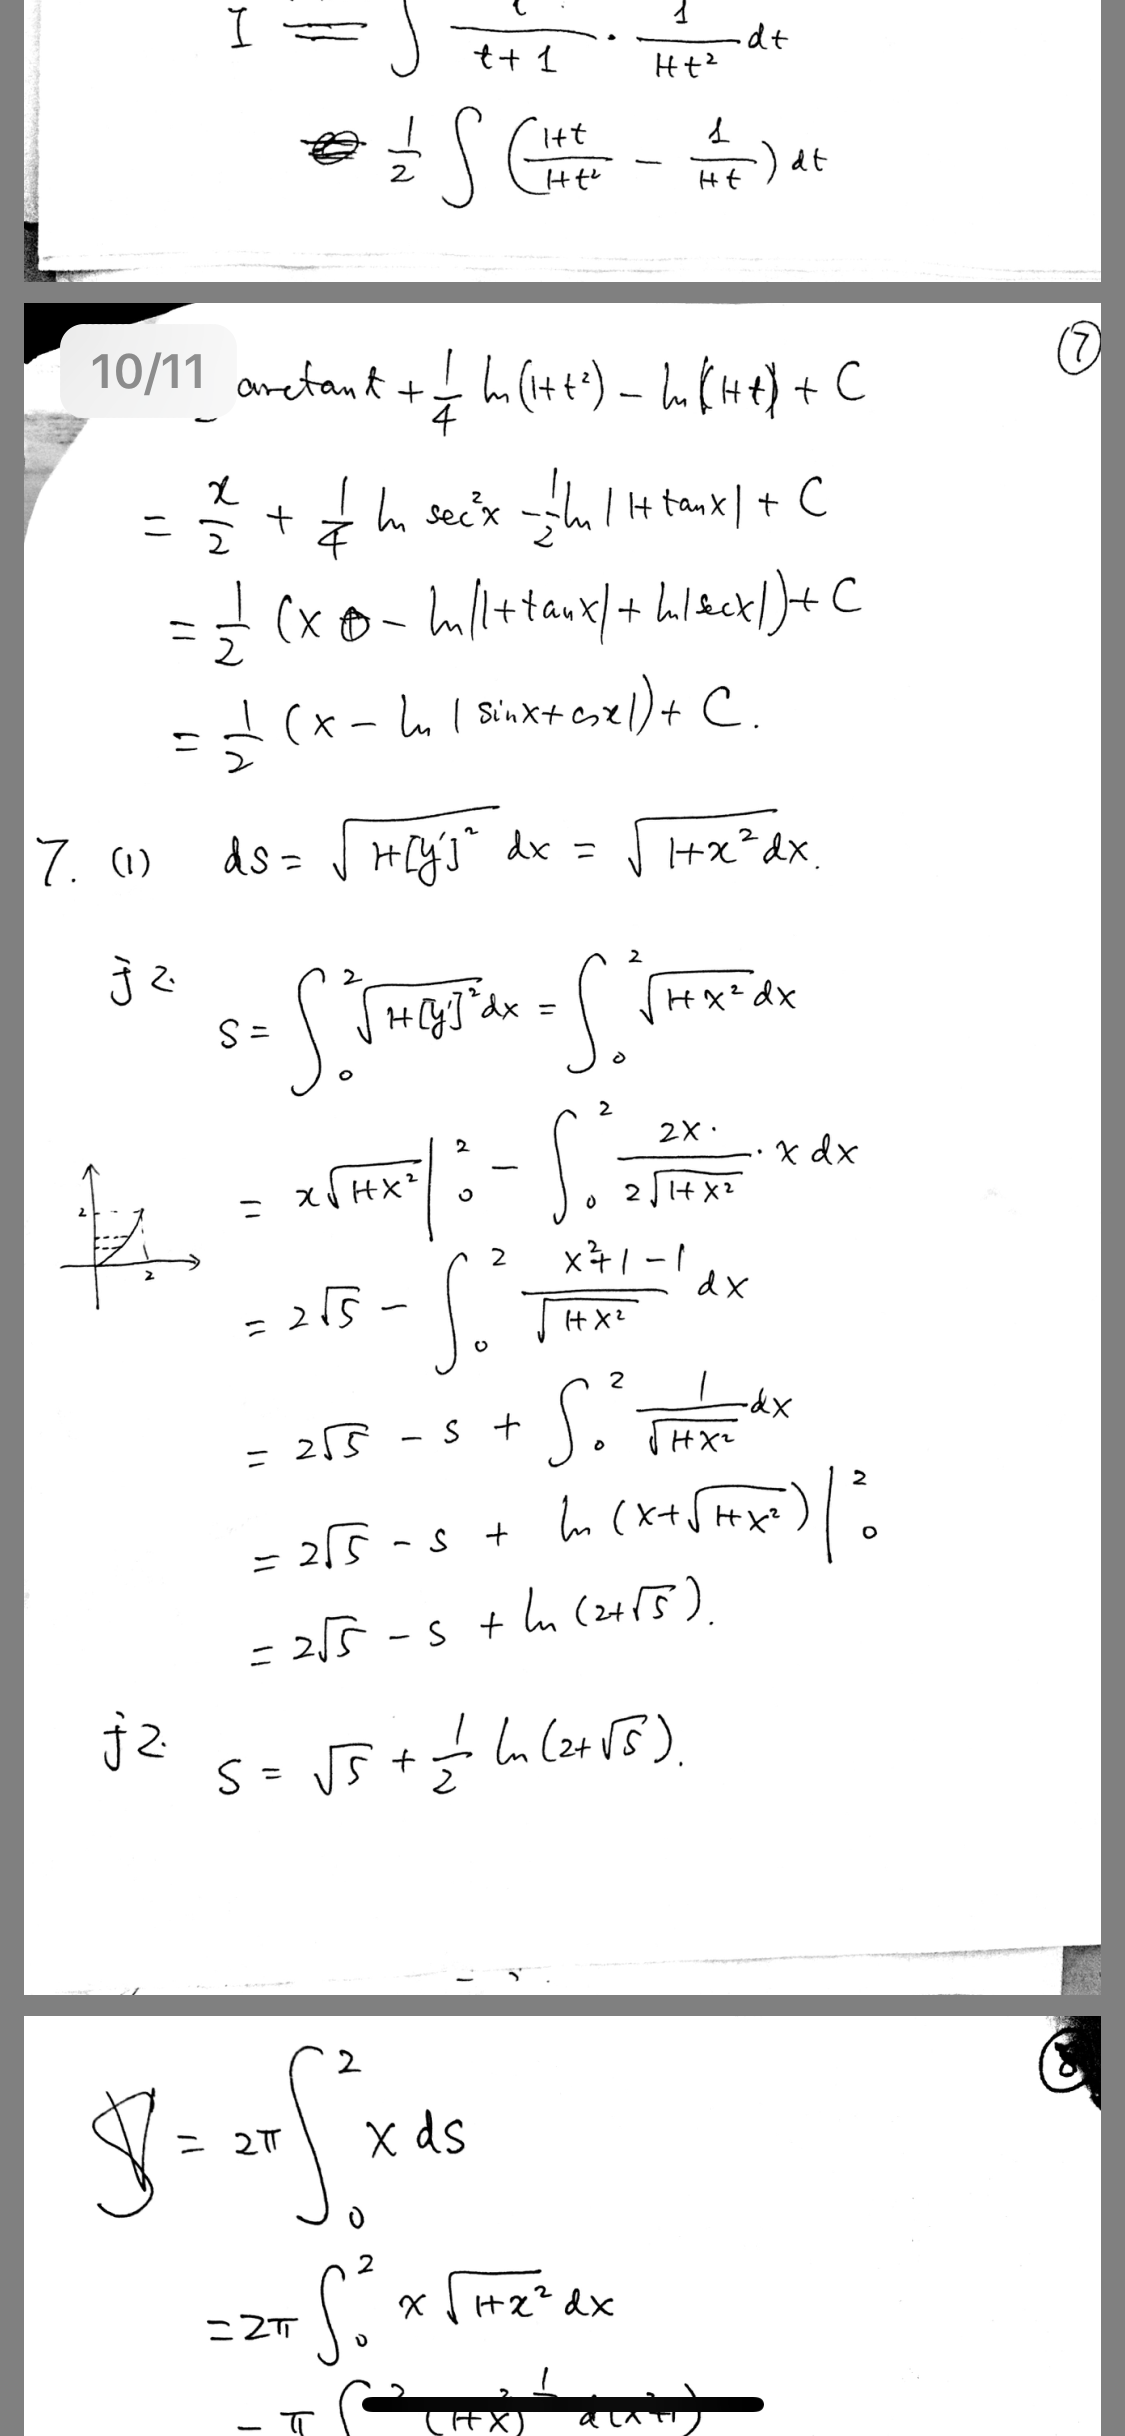 I = ∫ t/(t+1) · 1/(1+t²) dt
1/2 ∫ ( (1+t)/(1+t²) − 1/(1+t) ) dt
⑦
10/11
arctan t + 1/4 ln(1+t²) − ln(1+t) + C
= x/2 + 1/4 ln sec²x − 1/2 ln|1+tanx| + C
= 1/2 (x − ln|1+tanx| + ln|secx|) + C
= 1/2 (x − ln|sinx+cosx|) + C.
7. (1) ds = √(1+[y']²) dx = √(1+x²) dx.
S = ∫₀² √(1+[y']²) dx = ∫₀² √(1+x²) dx
= x√(1+x²) |₀² − ∫₀² 2x/(2√(1+x²)) · x dx
2
2
= 2√5 − ∫₀² (x²+1−1)/√(1+x²) dx
= 2√5 − S + ∫₀² 1/√(1+x²) dx
= 2√5 − S + ln(x+√(1+x²)) |₀²
= 2√5 − S + ln(2+√5).
S = √5 + 1/2 ln(2+√5).
⑧
= 2π ∫₀² x ds
= 2π ∫₀² x √(1+x²) dx